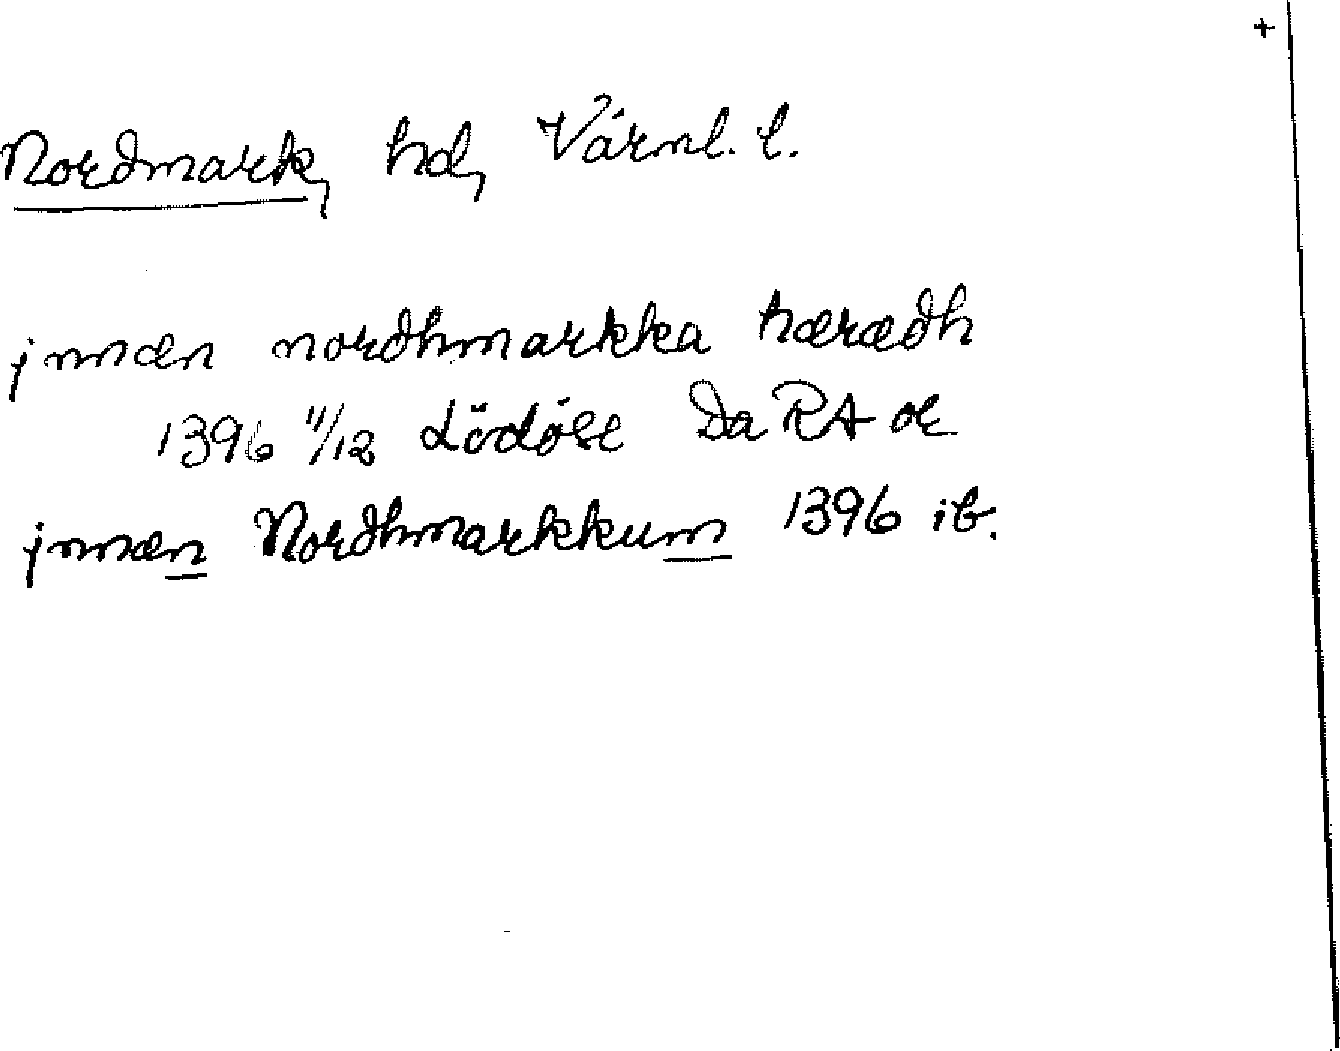 +
Nordmark, hd, Värml. l.
jnnæn nordhmarkka hærædh
1396 11/12 Lödöse Da RA or
jnnæn Nordhmarkkum 1396 ib.